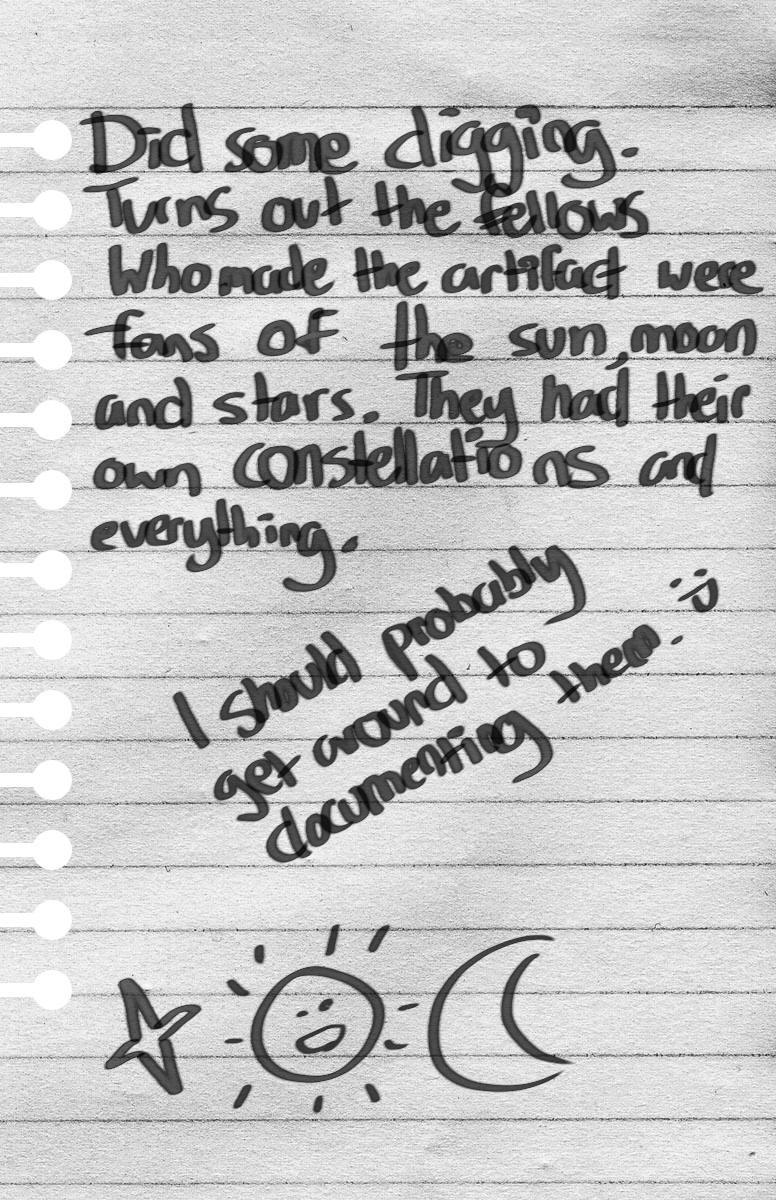 Did some digging.
Turns out the fellows
Who made the artifact were
fans of the sun, moon
and stars. They had their
own constellations and
everything.
I should probably
get around to
documenting them. :)